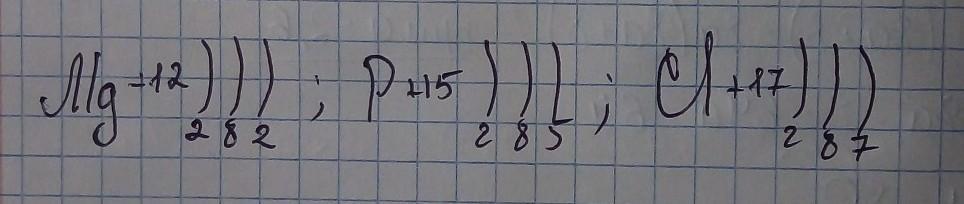 Mg +12 ) ) ) ; P +15 ) ) ) ; Cl +17 ) ) )
2 8 2 2 8 5 2 8 7